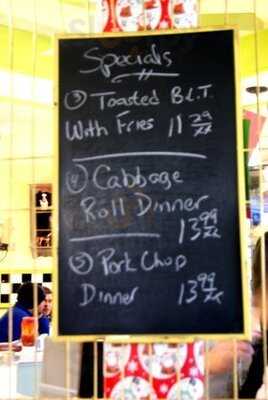 Specials
③ Toasted B.L.T.
With Fries 11 29/xx
④ Cabbage
Roll Dinner
13 99/xx
⑤ Pork Chop
Dinner 13 99/xx